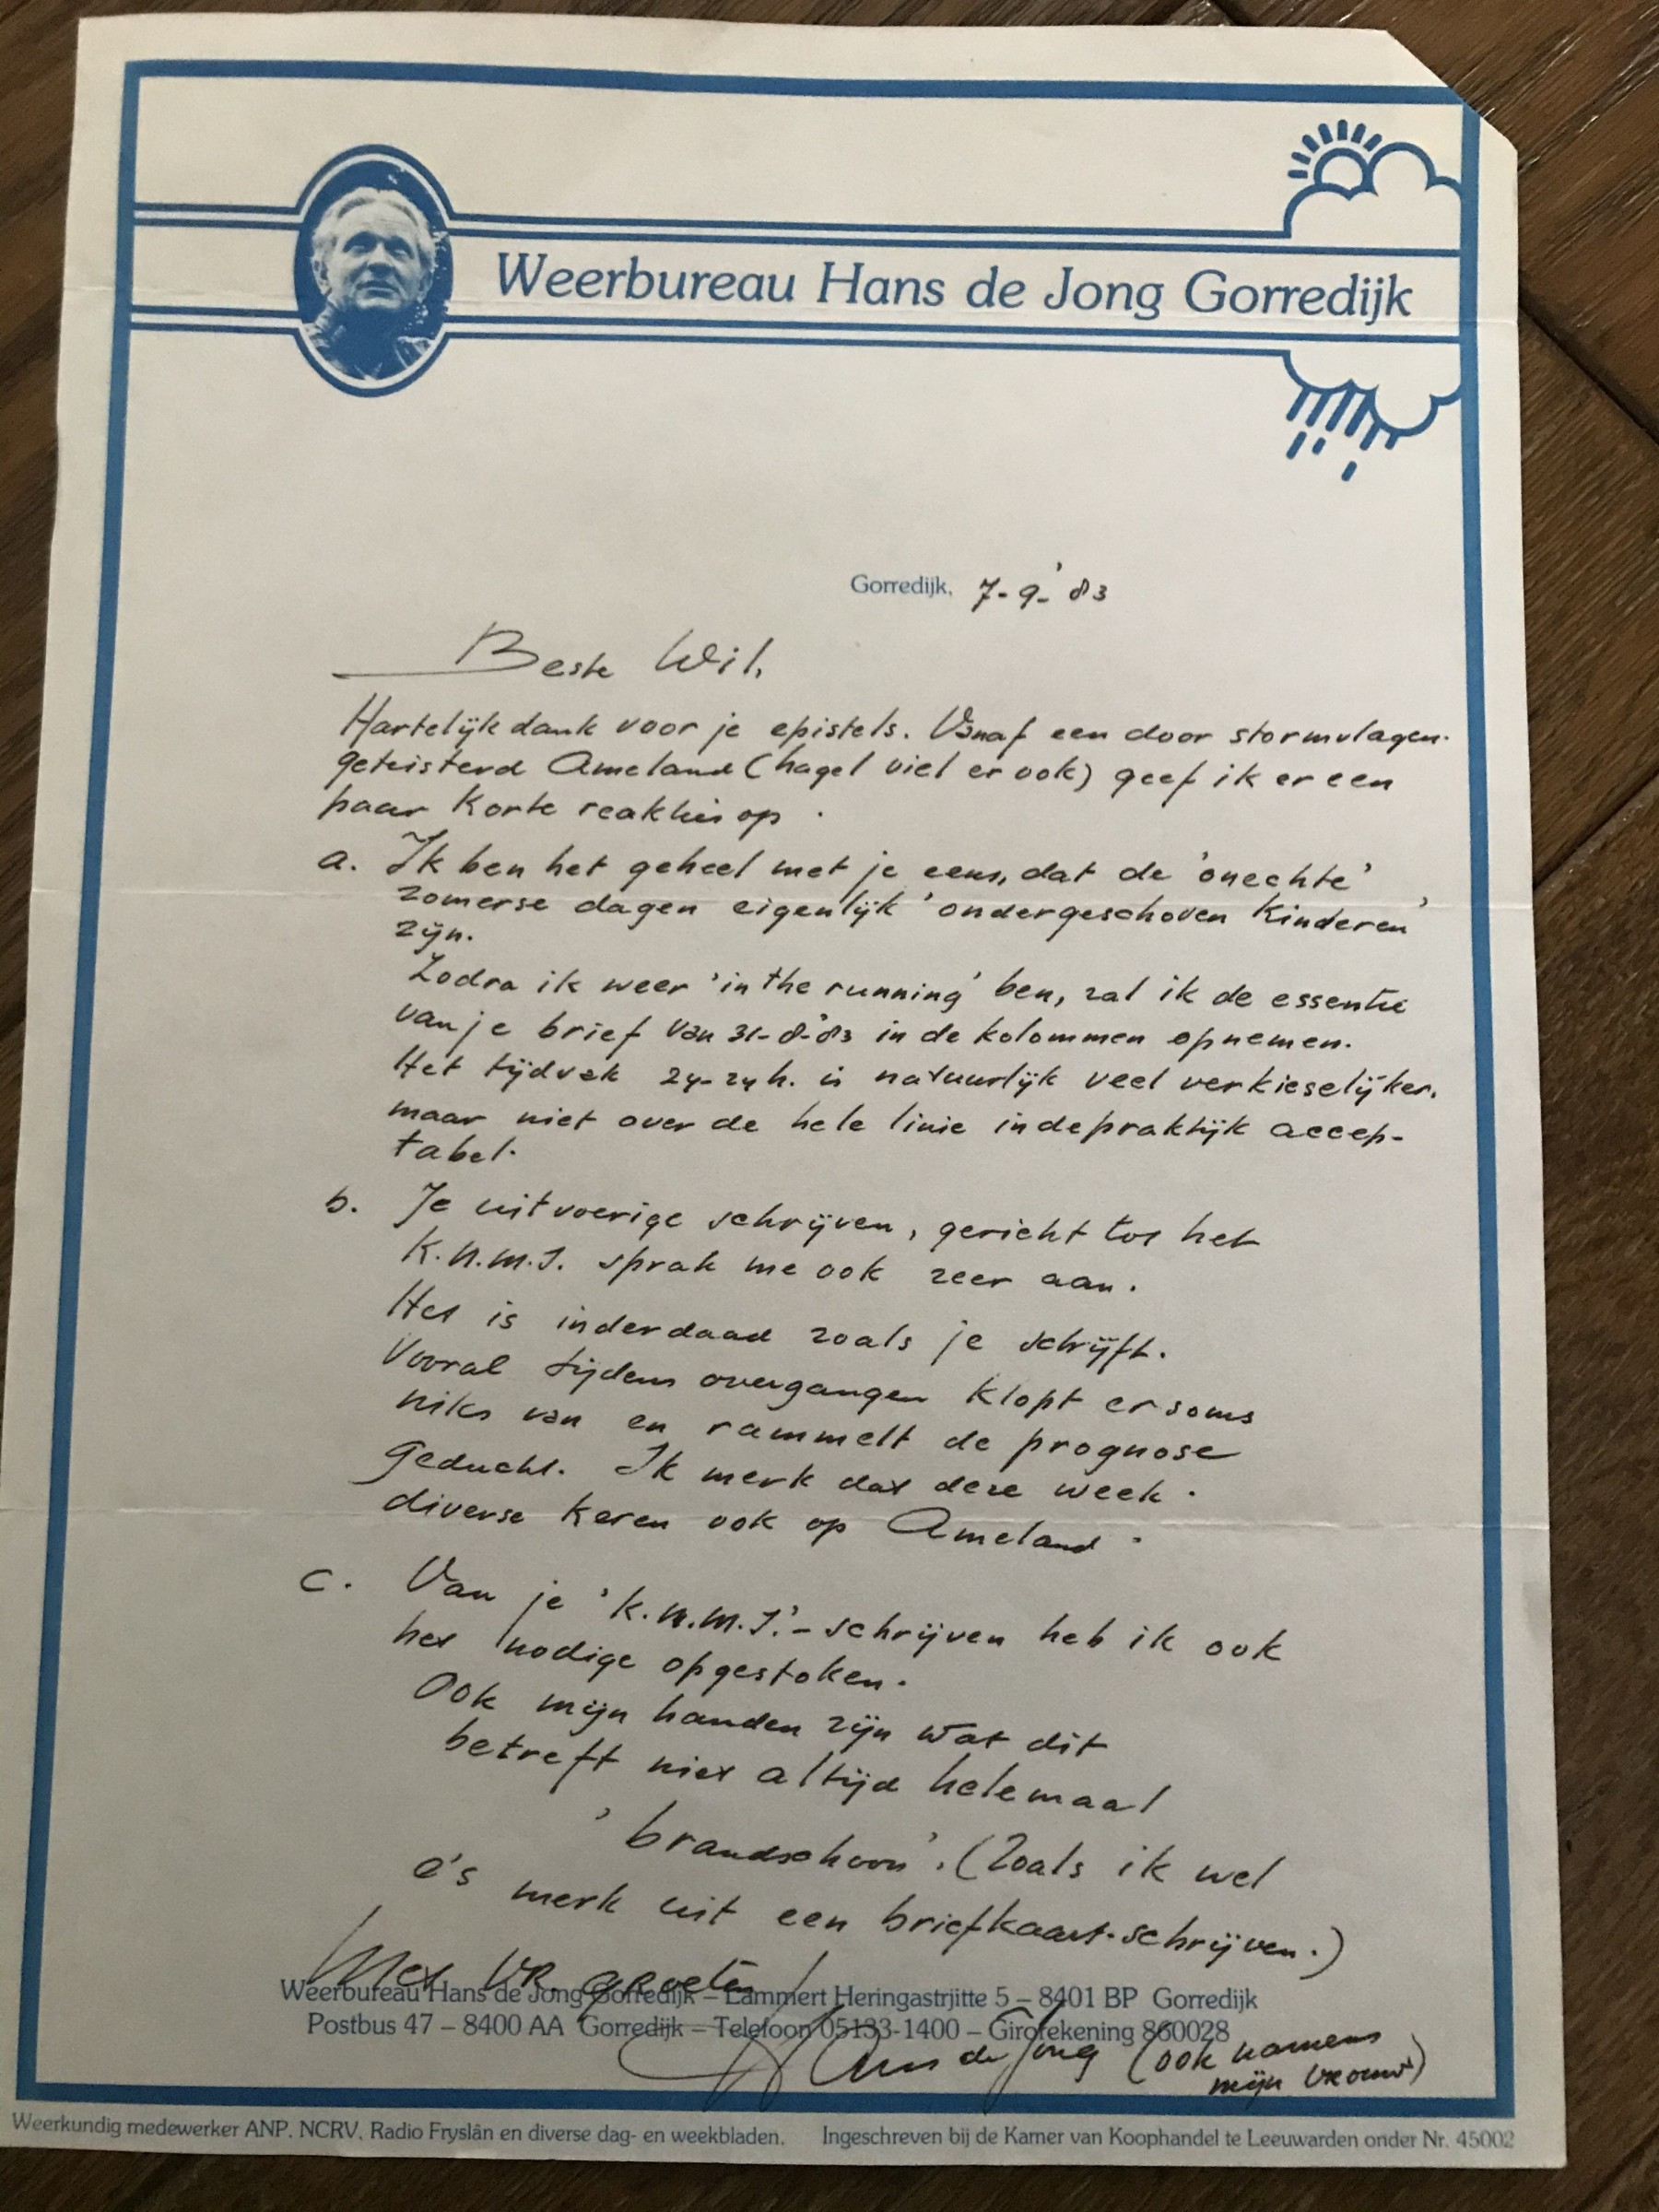 Weerbureau Hans de Jong Gorredijk
Gorredijk, 7-9-'83
Beste Wil,
Hartelijk dank voor je epistels. Vanaf een door stormvlagen-
geteisterd Ameland (hagel viel er ook) geef ik er een
paar korte reakties op.
a. Ik ben het geheel met je eens, dat de 'onechte'
zomerse dagen eigenlijk 'ondergeschoven kinderen'
zijn.
Zodra ik weer 'in the running' ben, zal ik de essentie
van je brief van 31-8-'83 in de kolommen opnemen.
Het tijdvak 24-24h. is natuurlijk veel verkieselijker,
maar niet over de hele linie in de praktijk accep-
tabel.
b. Je uitvoerige schrijven, gericht tot het
K.N.M.I. sprak me ook zeer aan.
Het is inderdaad zoals je schrijft.
Vooral tijdens overgangen klopt er soms
niks van en rammelt de prognose
geducht. Ik merk dat deze week
diverse keren ook op Ameland.
c. Van je 'K.N.M.I.'-schrijven heb ik ook
het nodige opgestoken.
Ook mijn handen zijn wat dit
betreft niet altijd helemaal
'brandschoon'. (Zoals ik wel
e's merk uit een briefkaart-schrijven.)
Met vr. groeten!
Weerbureau Hans de Jong Gorredijk – Lammert Heringastrjitte 5 – 8401 BP Gorredijk
Postbus 47 – 8400 AA Gorredijk – Telefoon 05133-1400 – Girorekening 860028
Hans de Jong (ook namens
mijn vrouw)
Weerkundig medewerker ANP, NCRV, Radio Fryslân en diverse dag- en weekbladen. Ingeschreven bij de Kamer van Koophandel te Leeuwarden onder Nr. 45002